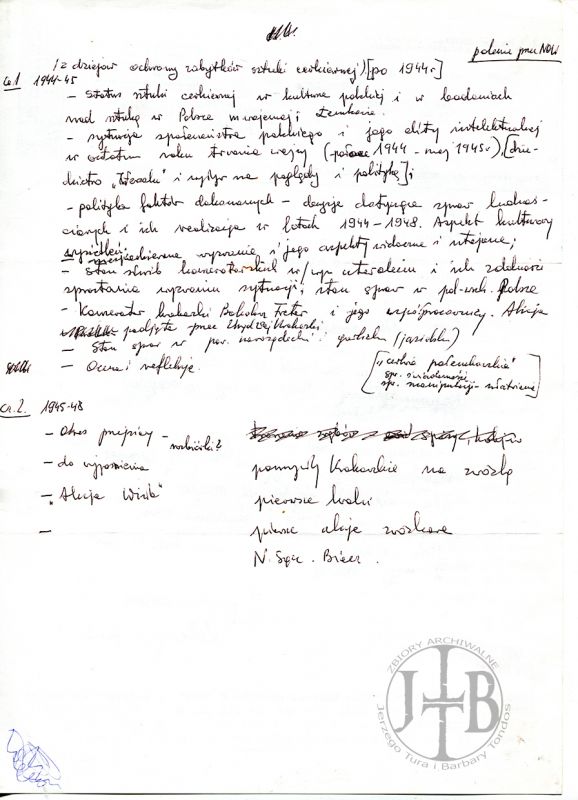 polecenie przez NDW
/z dziejów ochrony zabytków sztuki cerkiewnej) [po 1944 r]
cz.1 1944-45
– Status sztuki cerkiewnej w kulturze polskiej i w badaniach
nad sztuką w Polsce m.wojennej i
– sytuacja społeczeństwa polskiego i jego elity intelektualnej
w ostatnim roku trwania wojny (1944 – maj 1945 r), [dzie-
dzictwo i wpływ na poglądy i politykę];
– polityka faktów dokonanych – decyzje dotyczące spraw ludnoś-
ciowych i ich realizacja w latach 1944-1948. Aspekt kulturowy
wyzwanie i jego aspekty widoczne i utajone;
– Stan służb konserwatorskich w/wym utworzeniu i ich zdolności
sprostania wyzwaniu sytuacji; stan spraw w pol-wsch. Polsce
– Konserwator krakowski Bohdan Treter i jego współpracownicy. Akcja
podjęta przez Urząd Woj Krakowski
– Stan spraw w pow. nowosądeckim i gorlickim (jasielski)
– Ocena i refleksje.
["cerkwie połemkowskie"
spr. świadomości
spr. manipulacji – władzy]
cz.2. 1945-48
– Okres przejściowy – rozbiórki?
– do wyjaśnienia
pomysły krakowskie na zwózkę
– "Akcja Wisła"
pierwsze kroki
–
pierwsze akcje zwózkowe
N. Sącz. Biecz.
ZBIORY ARCHIWALNE
JTB
Jerzego Tura i Barbary Tondos